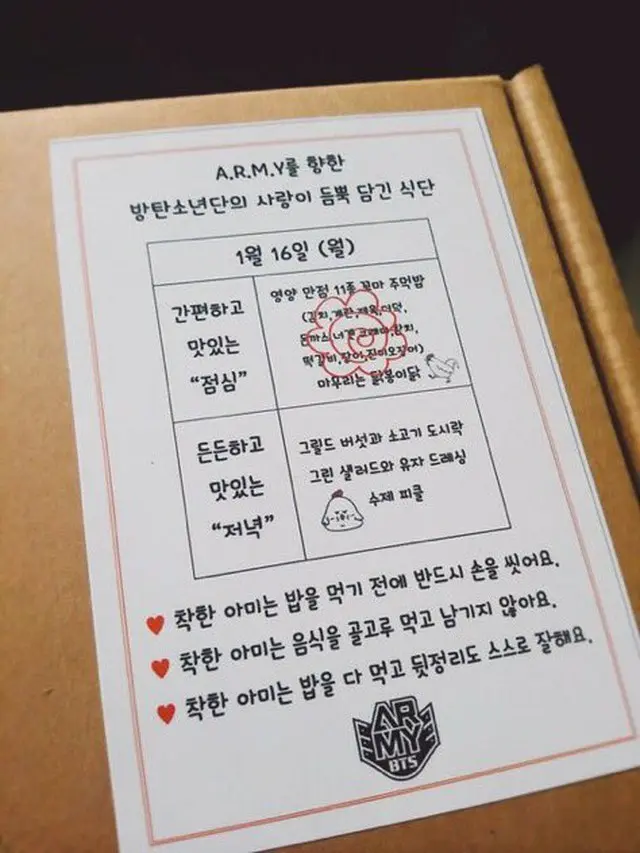 A.R.M.Y를 향한
방탄소년단의 사랑이 듬뿍 담긴 식단
1월 16일 (월)
간편하고
맛있는
“점심”
영양 만점 11종 꼬마 주먹밥
(김치,계란,제육,더덕,
돈까스,너겟,크래미,참치,
떡갈비,장어,진미오징어)
마무리는 닭봉이닭
든든하고
맛있는
“저녁”
그릴드 버섯과 소고기 도시락
그린 샐러드와 유자 드레싱
수제 피클
착한 아미는 밥을 먹기 전에 반드시 손을 씻어요.
착한 아미는 음식을 골고루 먹고 남기지 않아요.
착한 아미는 밥을 다 먹고 뒷정리도 스스로 잘해요.
AR
MY
BTS